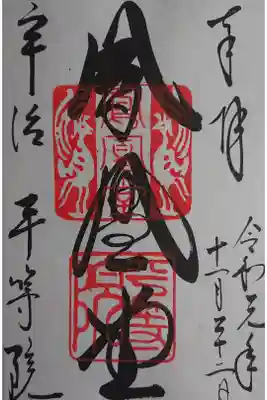 奉拝
令和元年
十一月二十二日
鳳凰堂
宇治 平等院
鳳凰堂